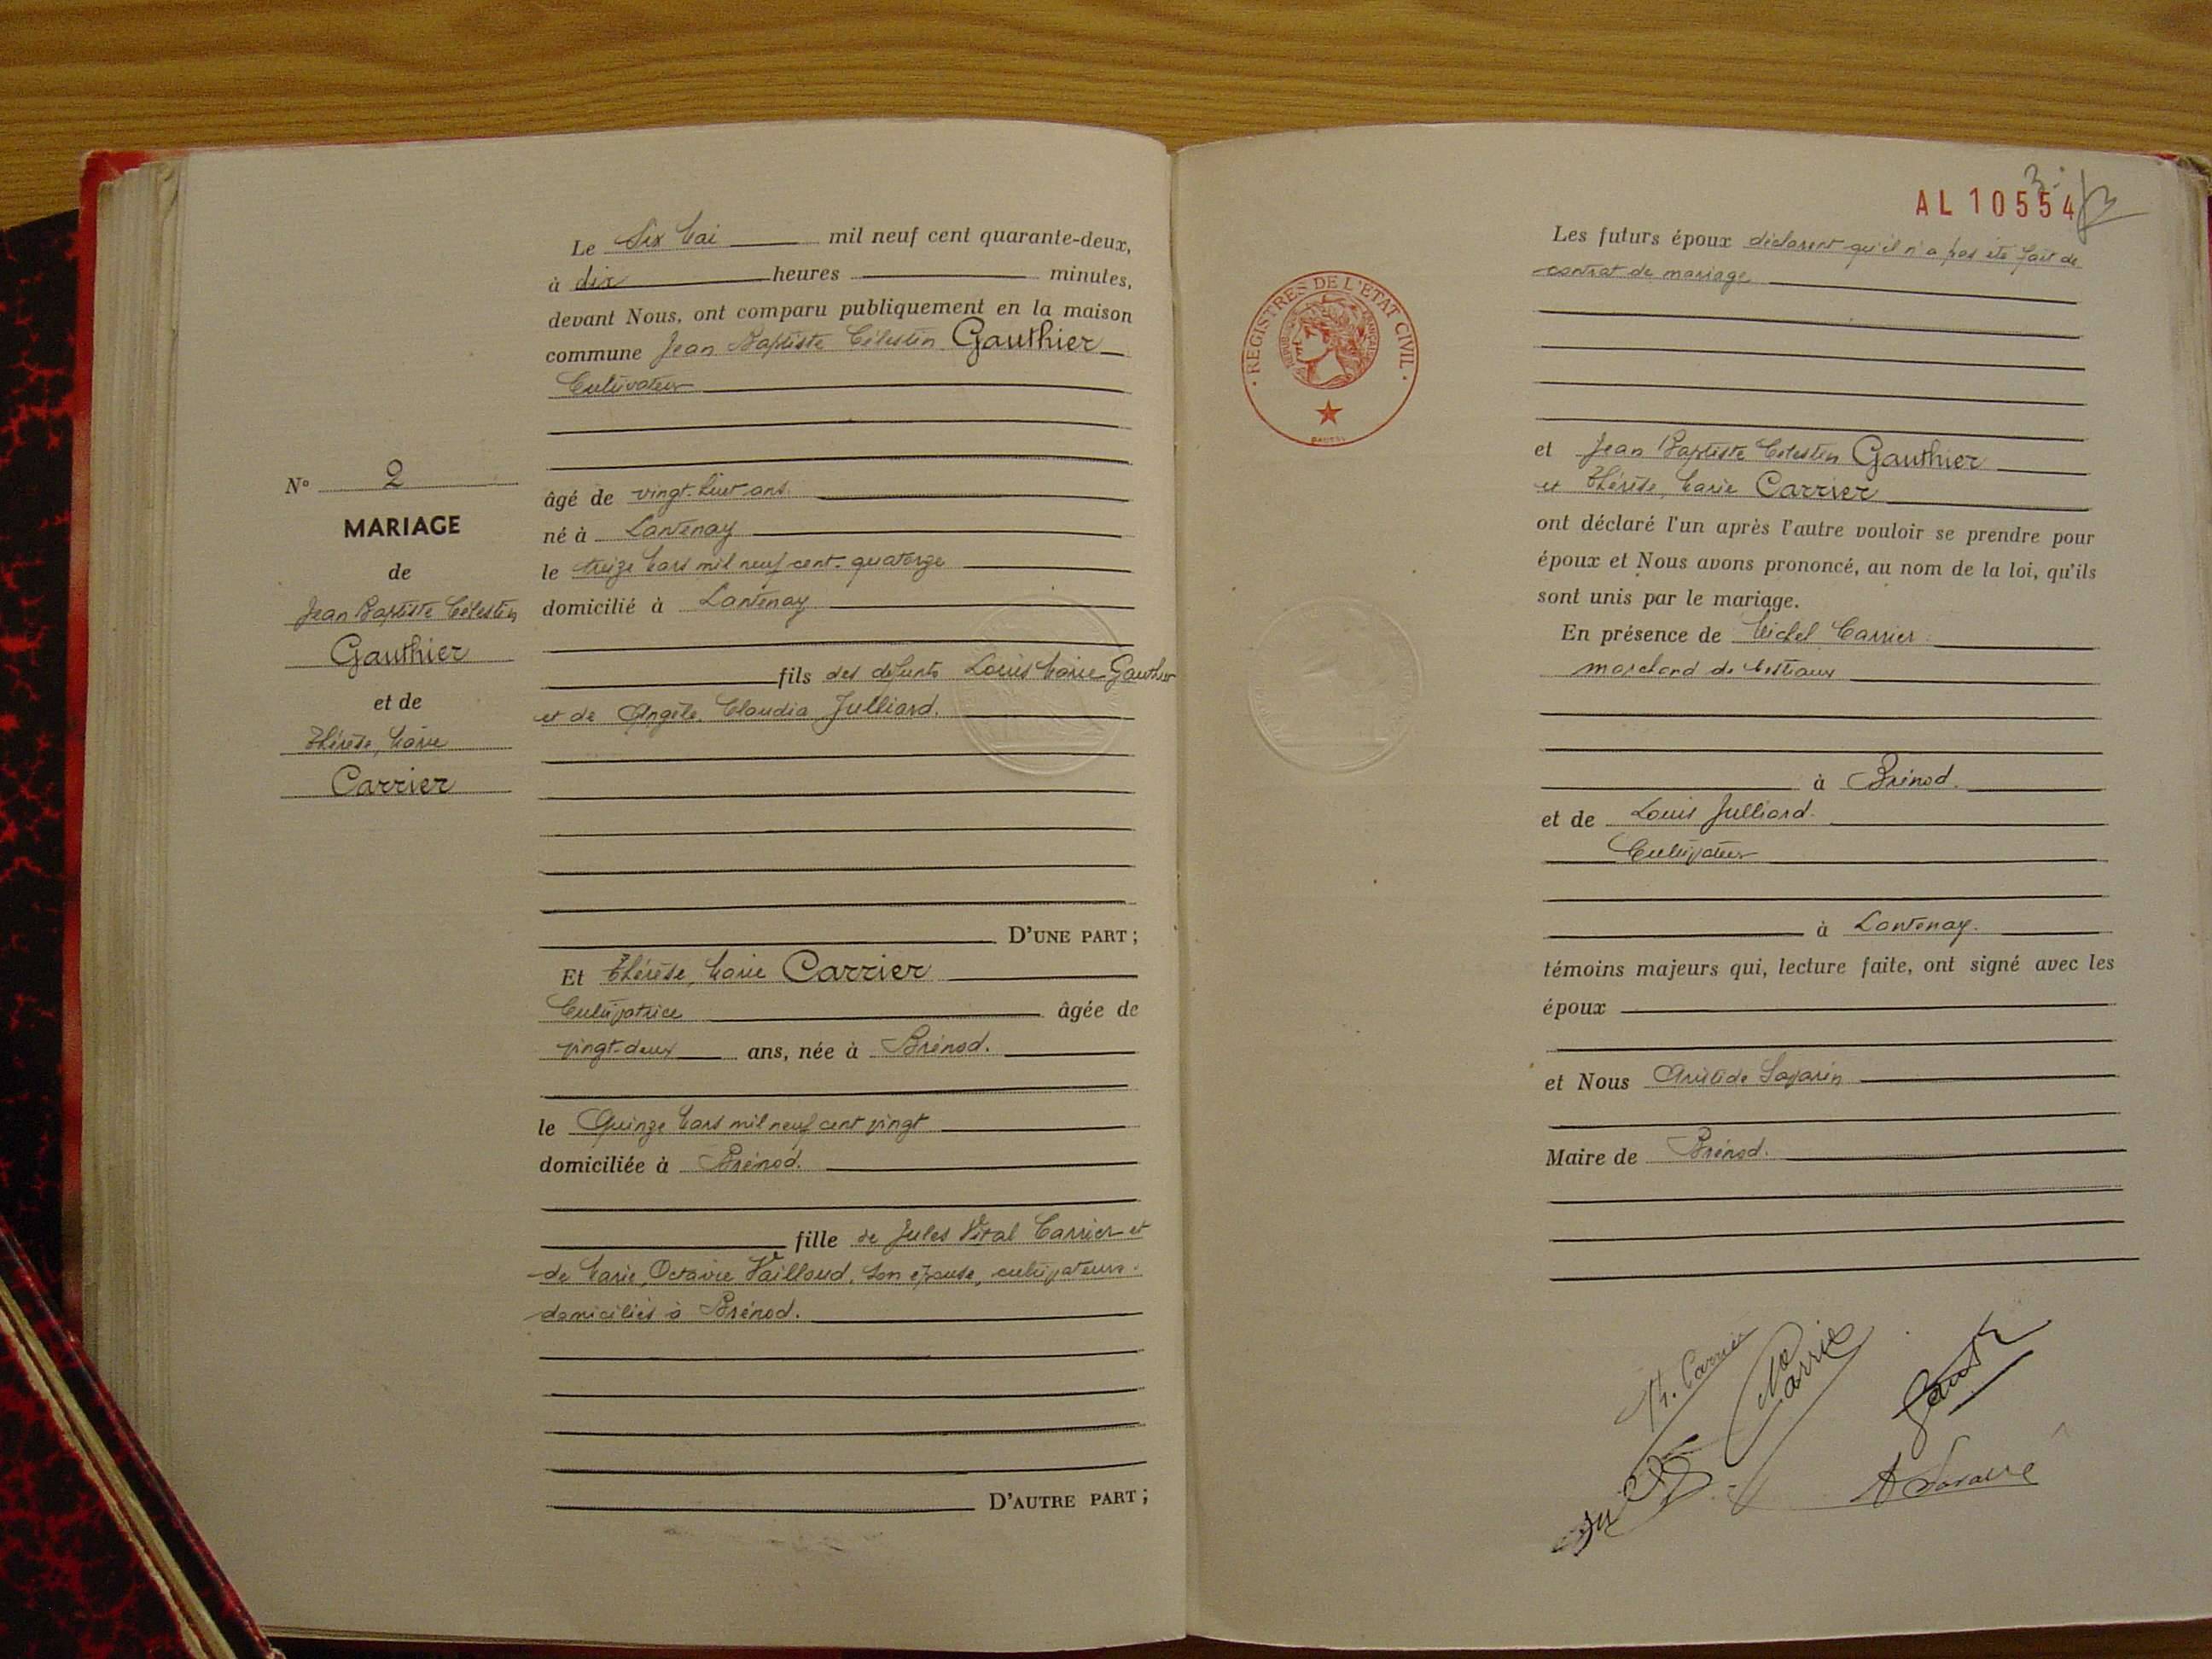 Le Six Mai mil neuf cent quarante-deux,
à dix heures minutes,
devant Nous, ont comparu publiquement en la maison
commune Jean Baptiste Célestin Gauthier
Cultivateur
âgé de vingt-huit ans.
né à Lantenay
le treize Mars mil neuf cent-quatorze
domicilié à Lantenay
fils des défunts Louis Marie Gauthier
et de Angèle, Claudia Julliard.
D'UNE PART ;
Et Thérèse, Marie Carrier
Cultivatrice âgée de
vingt-deux ans, née à Brénod.
le Quinze Mars mil neuf cent vingt
domiciliée à Brénod.
fille de Jules Vital Carrier et
de Marie, Octavie Vailloud, son épouse, cultivateurs.
domiciliés à Brénod.
D'AUTRE PART ;
N° 2
MARIAGE
de
Jean Baptiste Célestin
Gauthier
et de
Thérèse, Marie
Carrier
AL 10554
REGISTRES DE L'ETAT CIVIL
Les futurs époux déclarent qu'il n'a pas été fait de
contrat de mariage
et Jean Baptiste Célestin Gauthier
et Thérèse, Marie Carrier
ont déclaré l'un après l'autre vouloir se prendre pour
époux et Nous avons prononcé, au nom de la loi, qu'ils
sont unis par le mariage.
En présence de Michel Carrier
marchand de bestiaux
à Brénod.
et de Louis Julliard.
Cultivateur
à Lantenay.
témoins majeurs qui, lecture faite, ont signé avec les
époux
et Nous Aristide Savarin
Maire de Brénod.
Th. Carrier
A Savarin